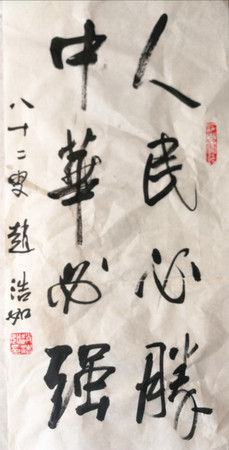 人民必勝
中華必强
八十二叟 趙浩如